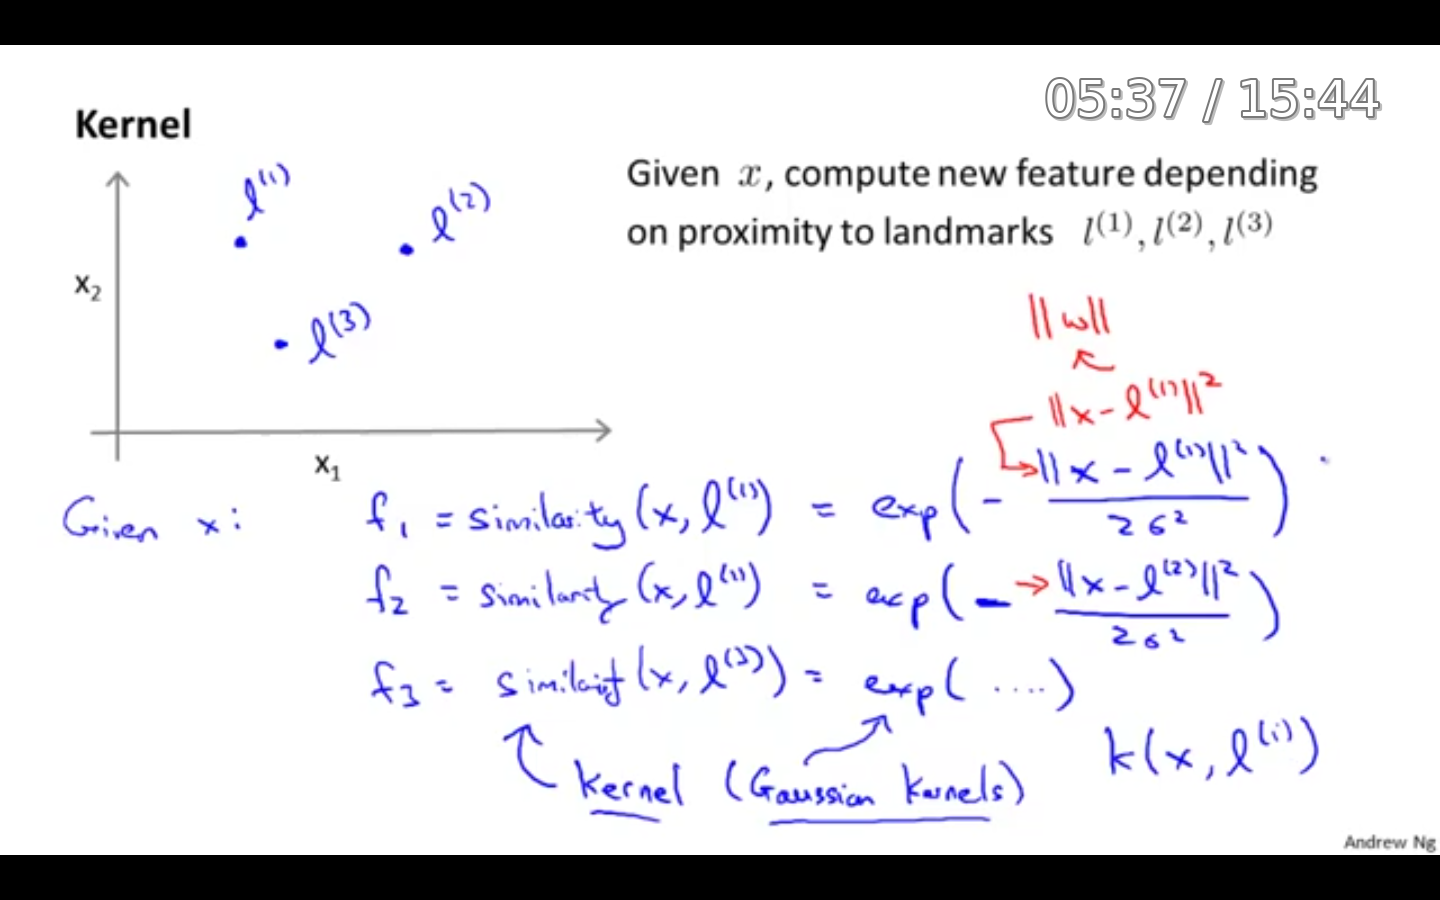 05:37 / 15:44
Kernel
l^(1)
l^(2)
l^(3)
x₂
x₁
Given x, compute new feature depending
on proximity to landmarks l^(1), l^(2), l^(3)
||w||
||x - l^(1)||²
Given x:
f₁ = similarity (x, l^(1)) = exp(- ||x - l^(1)||² / 2σ²)
f₂ = similarity (x, l^(1)) = exp(- ||x - l^(2)||² / 2σ²)
f₃ = similarity (x, l^(3)) = exp( .... )
kernel (Gaussian kernels)
k(x, l^(i))
Andrew Ng